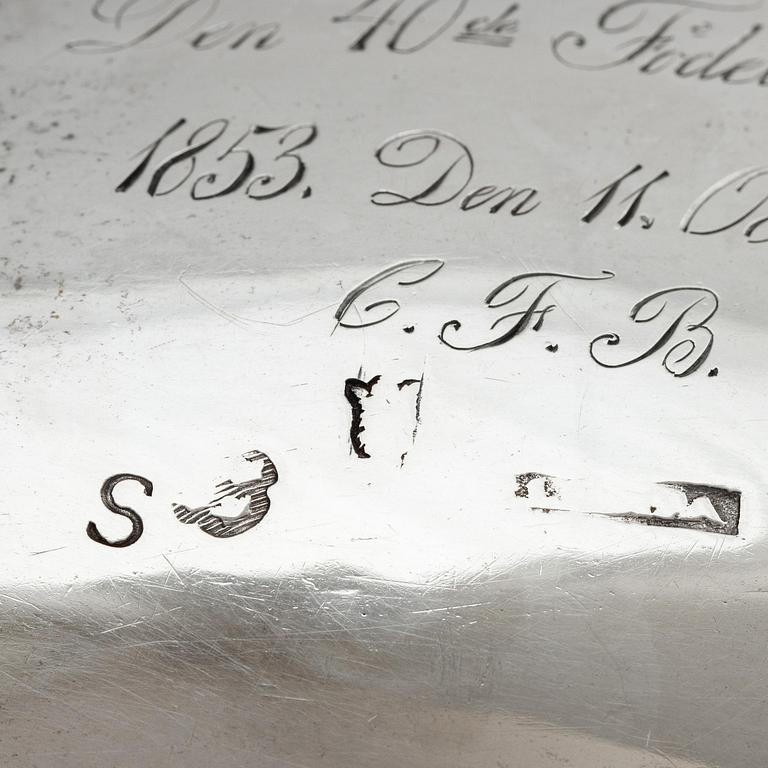 Den 40de
1853. Den 11.
C. F. B.
S